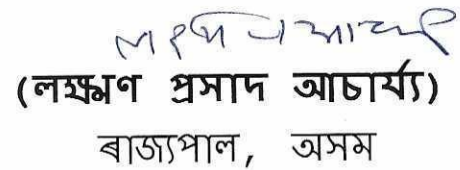 (লক্ষ্মণ প্ৰসাদ আচাৰ্য্য)
ৰাজ্যপাল, অসম